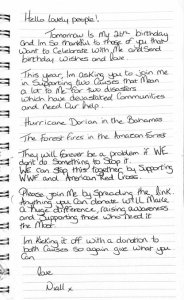 Hello lovely people!
Tomorrow Is my 26th birthday
And Im so thankful to those of you that
Want to Celebrate with Me and Send
birthday wishes and love
This year, Im asking you to Join me
in Supporting two Causes that Mean
a lot to Me. For two disasters
which have devastated Communities
and need Our help:
Hurricane Dorian in the Bahamas
The Forest fires in the Amazon forest
They will forever be a problem if WE
don't do Something to Stop it.
WE can Stop this together by Supporting
WWF and American Red Cross.
Please Join Me by Spreading the link.
Anything you can donate will Make
a Huge difference, raising awareness
and Supporting those who Need it
the Most.
Im Kicking it off with a donation to
both Causes so again give what you
Can
love
Niall x